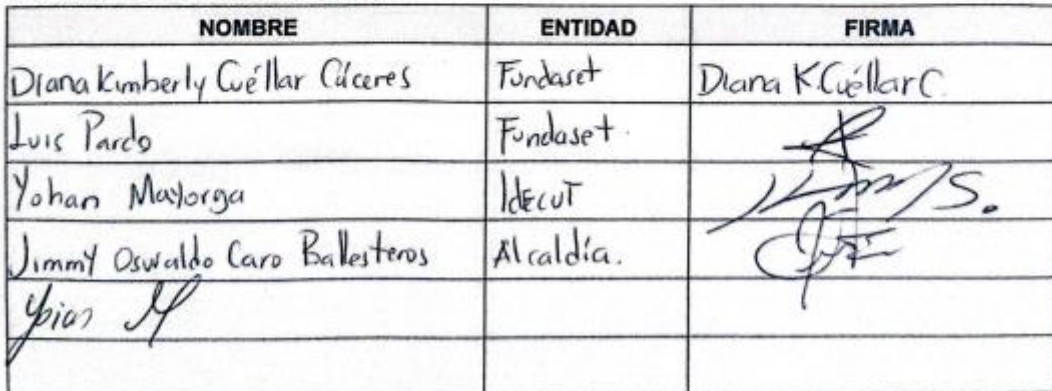 NOMBRE ENTIDAD FIRMA
Diana Kimberly Cuéllar Cáceres Fundaset Diana K Cuéllar C.
Luis Pardo Fundaset.
Yohan Mayorga Idecut
Jimmy Oswaldo Caro Ballesteros Alcaldía.